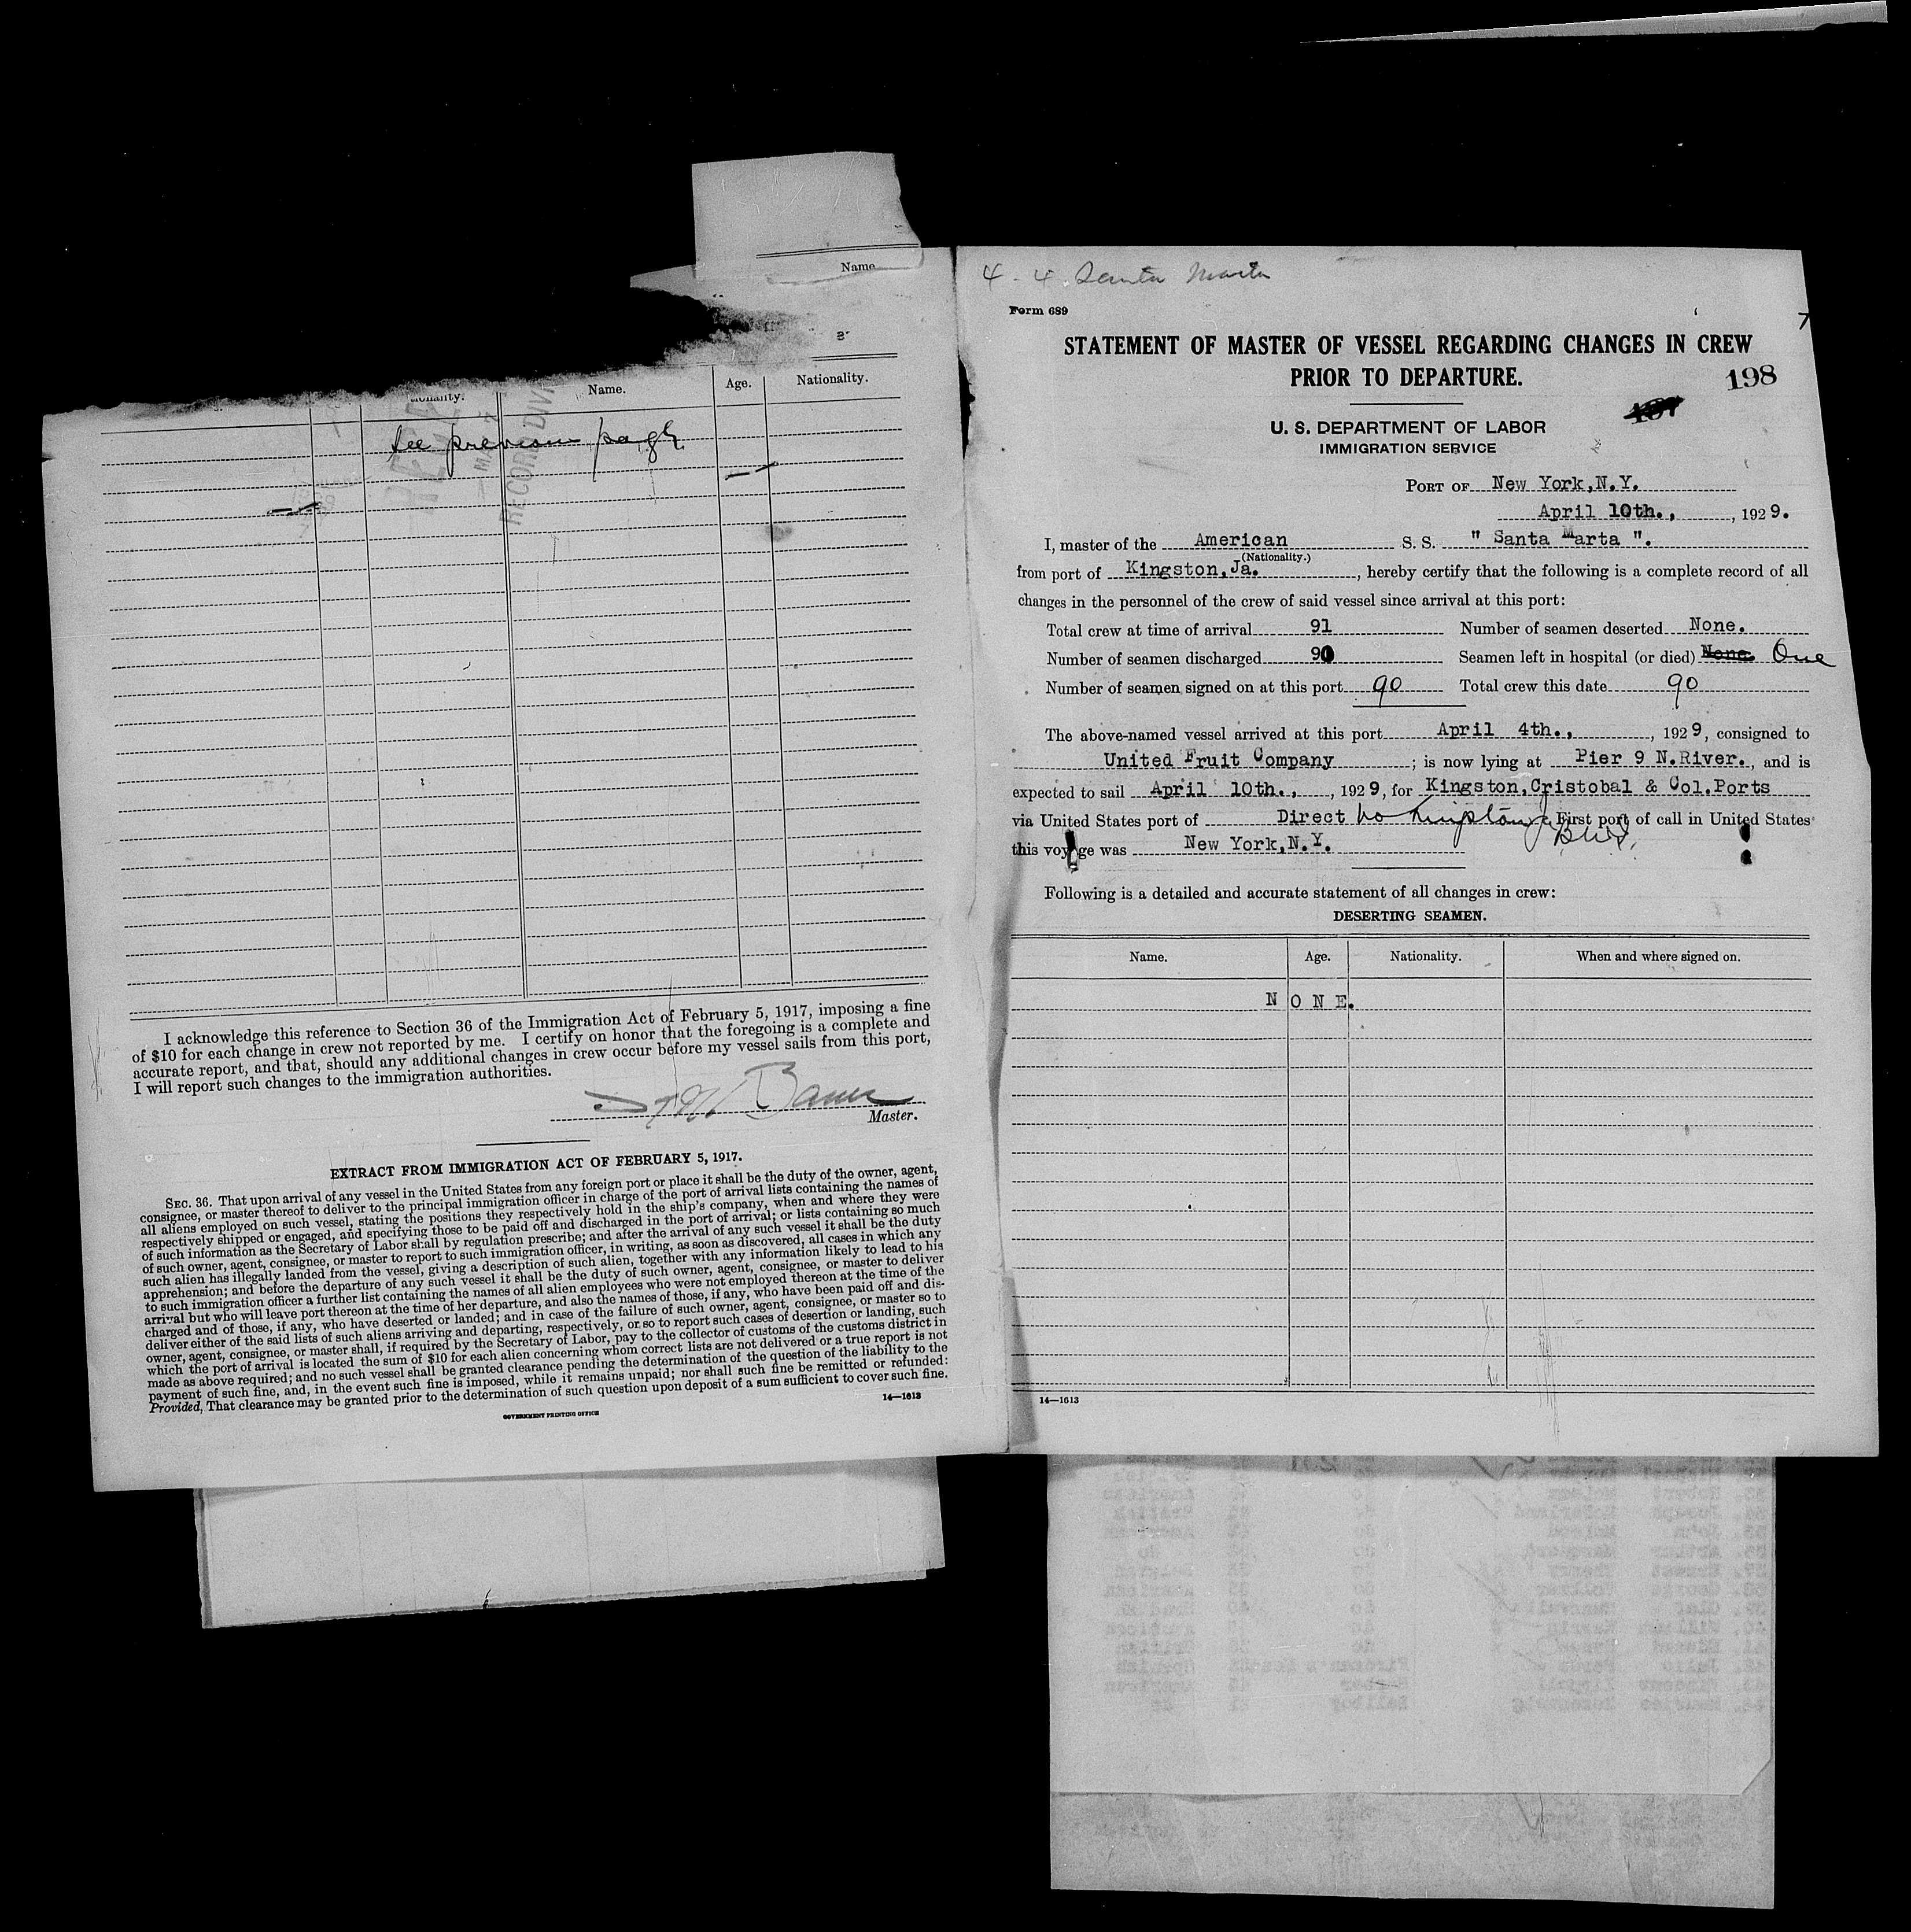 Name
Name.
Age.
Nationality.
see previous page
RECORD DIVI
I acknowledge this reference to Section 36 of the Immigration Act of February 5, 1917, imposing a fine
of $10 for each change in crew not reported by me. I certify on honor that the foregoing is a complete and
accurate report, and that, should any additional changes in crew occur before my vessel sails from this port,
I will report such changes to the immigration authorities.
Master.
EXTRACT FROM IMMIGRATION ACT OF FEBRUARY 5, 1917.
SEC. 36. That upon arrival of any vessel in the United States from any foreign port or place it shall be the duty of the owner, agent,
consignee, or master thereof to deliver to the principal immigration officer in charge of the port of arrival lists containing the names of
all aliens employed on such vessel, stating the positions they respectively hold in the ship's company, when and where they were
respectively shipped or engaged, and specifying those to be paid off and discharged in the port of arrival; or lists containing so much
of such information as the Secretary of Labor shall by regulation prescribe; and after the arrival of any such vessel it shall be the duty
of such owner, agent, consignee, or master to report to such immigration officer, in writing, as soon as discovered, all cases in which any
such alien has illegally landed from the vessel, giving a description of such alien, together with any information likely to lead to his
apprehension; and before the departure of any such vessel it shall be the duty of such owner, agent, consignee, or master to deliver
to such immigration officer a further list containing the names of all alien employees who were not employed thereon at the time of the
arrival but who will leave port thereon at the time of her departure, and also the names of those, if any, who have been paid off and dis-
charged and of those, if any, who have deserted or landed; and in case of the failure of such owner, agent, consignee, or master so to
deliver either of the said lists of such aliens arriving and departing, respectively, or so to report such cases of desertion or landing, such
owner, agent, consignee, or master shall, if required by the Secretary of Labor, pay to the collector of customs of the customs district in
which the port of arrival is located the sum of $10 for each alien concerning whom correct lists are not delivered or a true report is not
made as above required; and no such vessel shall be granted clearance pending the determination of the question of the liability to the
payment of such fine, and, in the event such fine is imposed, while it remains unpaid; nor shall such fine be remitted or refunded:
Provided, That clearance may be granted prior to the determination of such question upon deposit of a sum sufficient to cover such fine.
14—1613
GOVERNMENT PRINTING OFFICE
4 - 4 Santa Marta
Form 689
7
STATEMENT OF MASTER OF VESSEL REGARDING CHANGES IN CREW
PRIOR TO DEPARTURE.
198
U. S. DEPARTMENT OF LABOR
IMMIGRATION SERVICE
PORT OF New York,N.Y.
April 10th., , 1929.
I, master of the American S. S. " Santa Marta ".
(Nationality.)
from port of Kingston,Ja. , hereby certify that the following is a complete record of all
changes in the personnel of the crew of said vessel since arrival at this port:
Total crew at time of arrival 91 Number of seamen deserted None.
Number of seamen discharged 90 Seamen left in hospital (or died) None. One
Number of seamen signed on at this port 90 Total crew this date 90
The above-named vessel arrived at this port April 4th., , 1929, consigned to
United Fruit Company ; is now lying at Pier 9 N.River. , and is
expected to sail April 10th., , 1929, for Kingston,Cristobal & Col.Ports
via United States port of Direct to Kingston First port of call in United States
this voyage was New York,N.Y.
Following is a detailed and accurate statement of all changes in crew:
DESERTING SEAMEN.
Name. Age. Nationality. When and where signed on.
N O N E.
14—1613